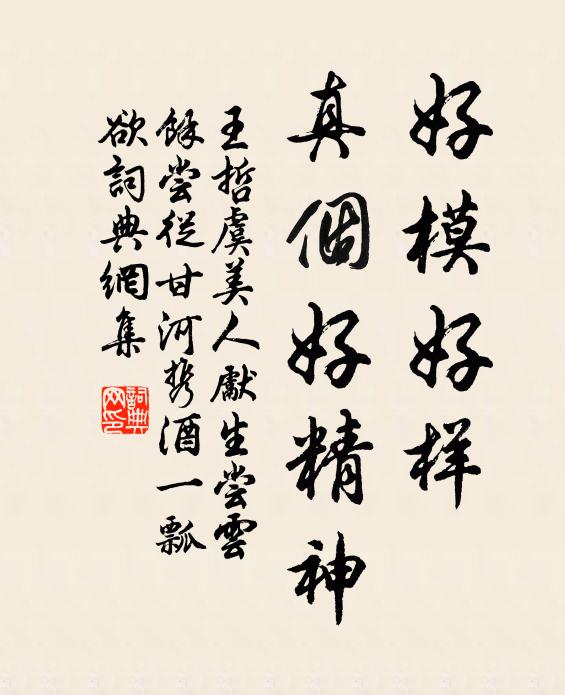 好模好样
真個好精神
王哲虞美人獻生尝雲
餘尝從甘河携酒一瓢
欲詞典網集
詞典
网印